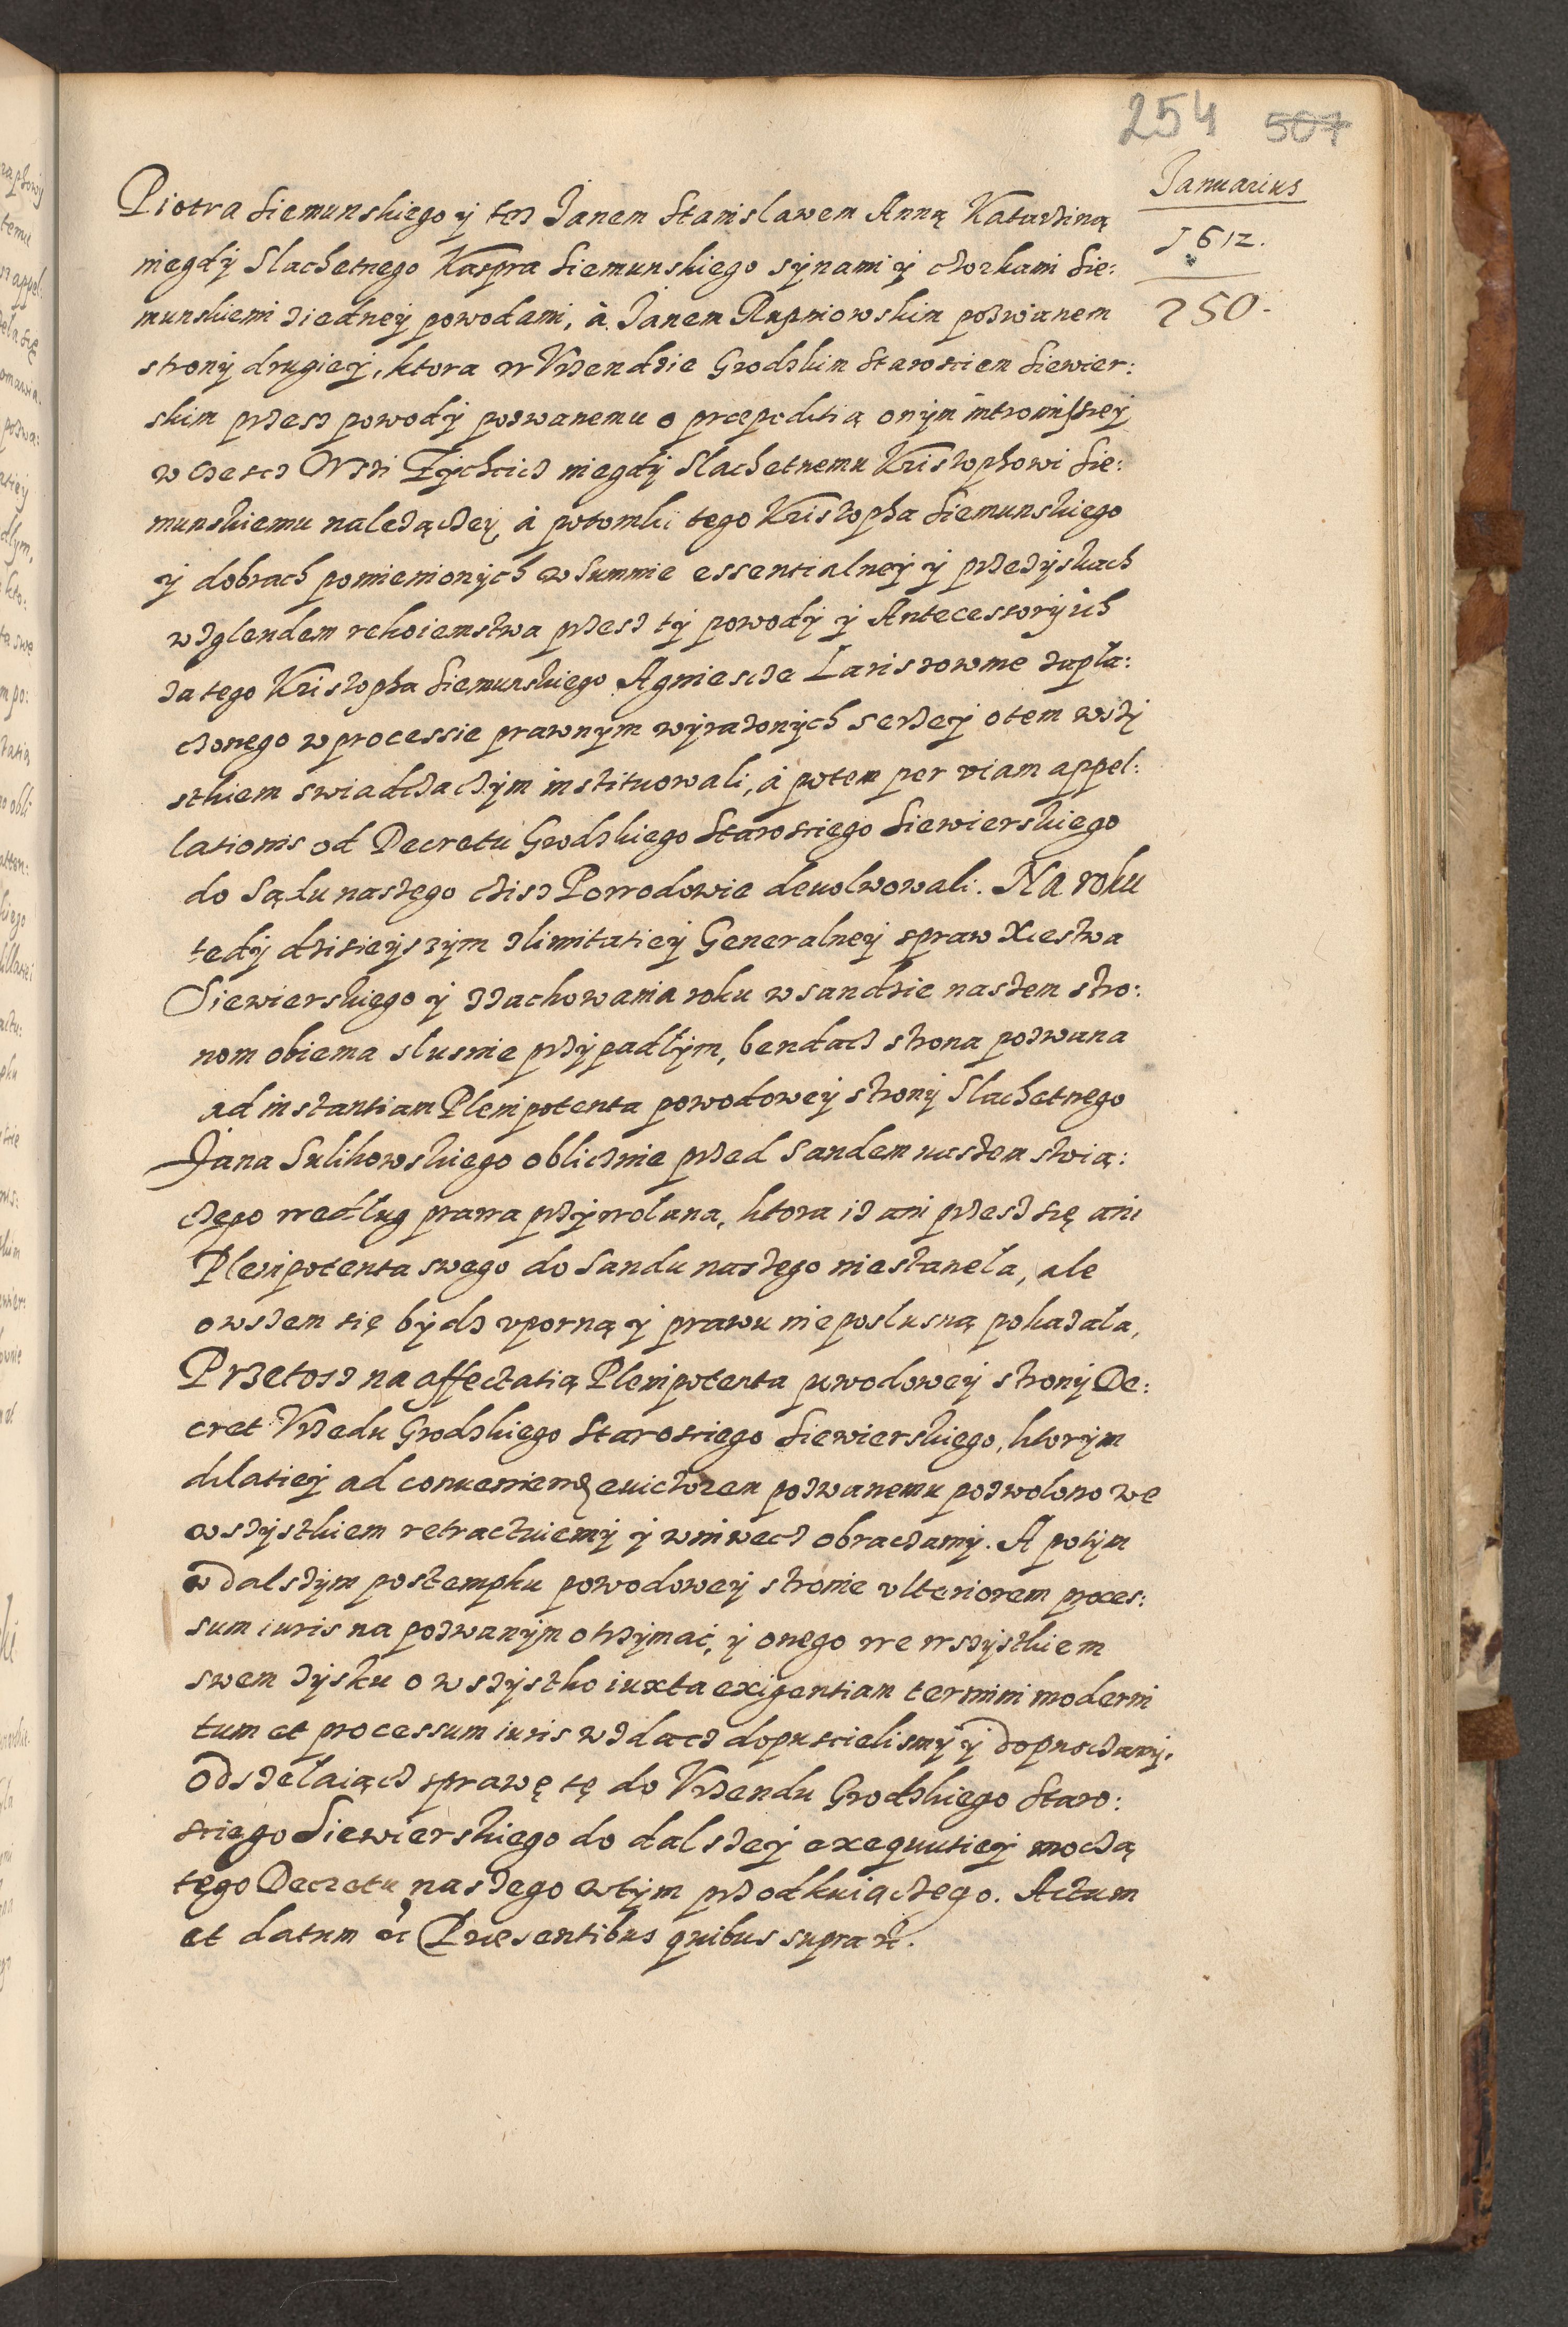 254 507
Januarius
1612.
250.
Piotra Siemunskiego y tez Janem Stanislawem Anną Katarziną
niegdy Slachetnego Kaspra Siemunskiego synami y czorkami Sie:
munskiemi ziedney powodami, à Janem Rupniowskim pozwanem
strony drugiey, ktora w Vrzendzie Grodzkim Staroscien Siewier:
skim przesz powody pozwanemu o praepeditią onym intromissiey
w czesci Wsi Zychcicz niegdy Slachetnemu Krisztophowi Sie:
munskiemu nalezączey, à potomki tego Krisztopha Siemunskiego
y dobrach pomienionych w summie essentialney y przezyskach
wzglendem rekoiemstwa przesz ty powody y Antecessory ich
za tego Krisztopha Siemunskiego Agniescze Lariszowne zapła:
czonego w processie prawnym wyrazonych serzey o tem wszy
stkiem swiadczaczym instituowali, à potem per viam appel:
lationis od Decretu Grodzkiego Starosciego Siewierskiego
do Sądu naszego cisz Powodowie deuolwowali. Na roku
tedy dzisieyszym z limitatiey Generalney spraw Xiestwa
Siewierskiego y zzachowania roku w sandzie naszem stro:
nom obiema slusnie przypadlym, bendacz strona pozwana
ad instantiam Plenipotenta powodowey strony Slachetnego
Jana Sulikowskiego oblicznie przed Sandem naszem stoią:
czego według prawa przywołana, ktora iz ani przesz się ani
Plenipotenta swego do Sandu naszego niestaneła, ale
owszem się bydz vporną y prawu nieposlusną pokazała,
Przetosz na affectatią Plenipotenta powodowey strony De:
cret Vrzedu Grodzkiego Starosciego Siewierskiego, ktorym
dilatiey ad conueniend euictorem pozwanemu pozwolono we
wszystkiem retractuiemy y wniwecz obraczamy. A potym
w dalszym postempku powodowey stronie vlteriorem proces:
sum iuris na pozwanym otrzymać, y onego we wszystkiem
swem zysku o wszystko iuxta exigentiam termini moderni
tum et processum iuris wzdacz dopuscielismy y dopusczamy.
Odsyełaiącz sprawę tę do Vrzendu Grodzkiego Staro:
sciego Siewierskiego do dalszey exequutiey moczą
tego Decretu naszego w tym przodkuiączego. Actum
et datum &c Praesentibus quibus supra &c.